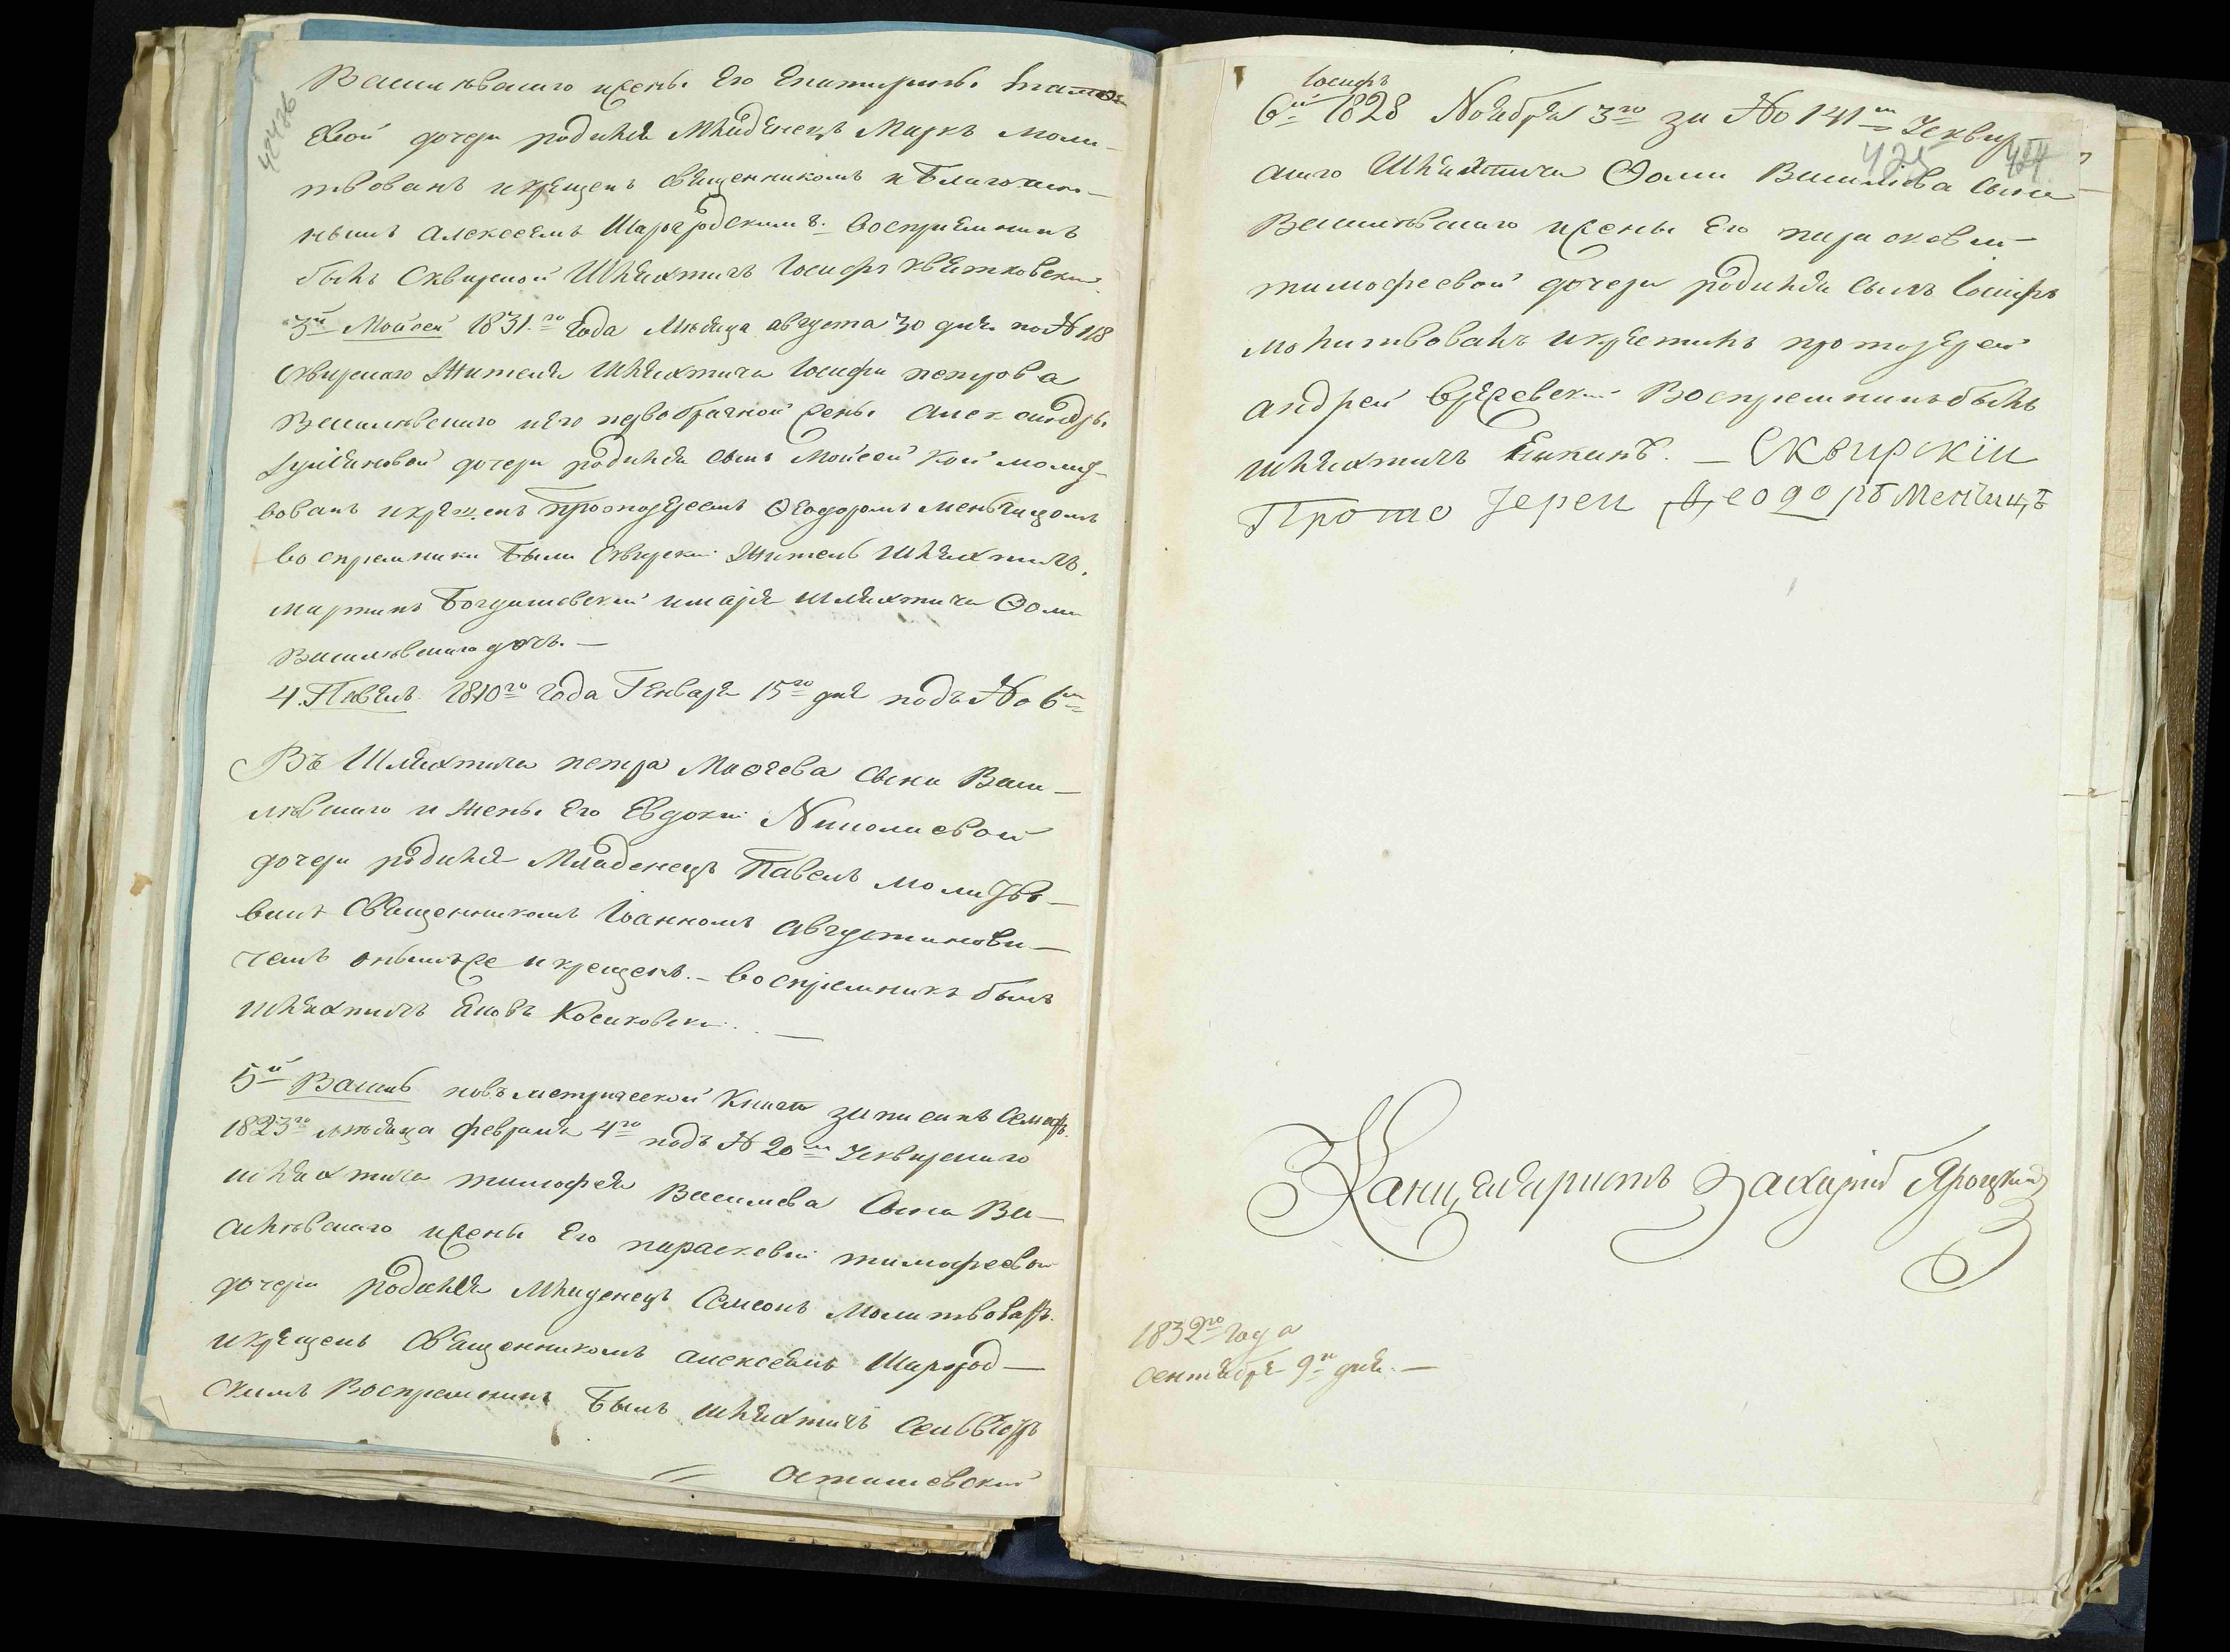 Василѣвскаго и жены Его Екатерины
евой дочери родился Младенецъ Маркъ моли-
твованъ и крещенъ священникомъ и благочин-
нымъ Алексеемъ Шаргородскимъ. Восприемникъ
былъ Сквирской Шляхтичъ Іосифъ Квятковски
3й Мойсей 1831го Года Мѣсяца августа 30 дня по № 118
Сквирскаго Жителя Шляхтича Іосифа петрова
Василѣвскаго и его первобрачной жены Александры
дочери родился сынъ Мойсей кой молит-
вованъ и крещенъ Протоиереемъ Ѳеодоромъ Менчицомъ
воспремники были Сквирски Житель Шляхтичъ
мартинъ Богдашевский и марія шляхтича Ѳомы
Василѣвскаго дочь. —
4. Павелъ 1810го Года Генваря 15го дня подъ № 6мъ
Въ Шляхтича петра Маѳеева сына Васи-
лѣвскаго и жены Его Евдокіи Николаевой
дочери родился Младенецъ Павелъ молитво-
ванъ Священникомъ Іоанномъ Августинови-
чемъ онымже и крещенъ. — воспремникъ былъ
шляхтичъ Яковъ Косаковски. —
5й Василь по въ метрической Книги записанъ Семионъ
1823го мѣсяца февраля 4го подъ № 20мъ Усквирскаго
шляхтича тимофея Василиева Сына Ва-
силѣвскаго и жены Его параскевіи тимофеевой
дочери родился Младенецъ Семеонъ Молитвованъ
и крещенъ Священникомъ алексеемъ Шаргород-
скимъ Воспремникъ Былъ шляхтичъ
Осташевский
Іосифъ
6й 1828 Ноября 3го за № 141мъ Усквир-
425 424
скаго Шляхтича Ѳомы Василіева сына
Василѣвскаго и жены Его параскевіи
тимофеевой дочери родился сынъ Іосифъ
молитвовалъ и крестилъ протоіерей
андрей Воспремникъ былъ
шляхтичъ — Сквирскій
Прото Іерей Ѳеодоръ Менчицъ
Канцеляристъ Захарій Яроцкий
1832го Года
сентября 9го дня. —